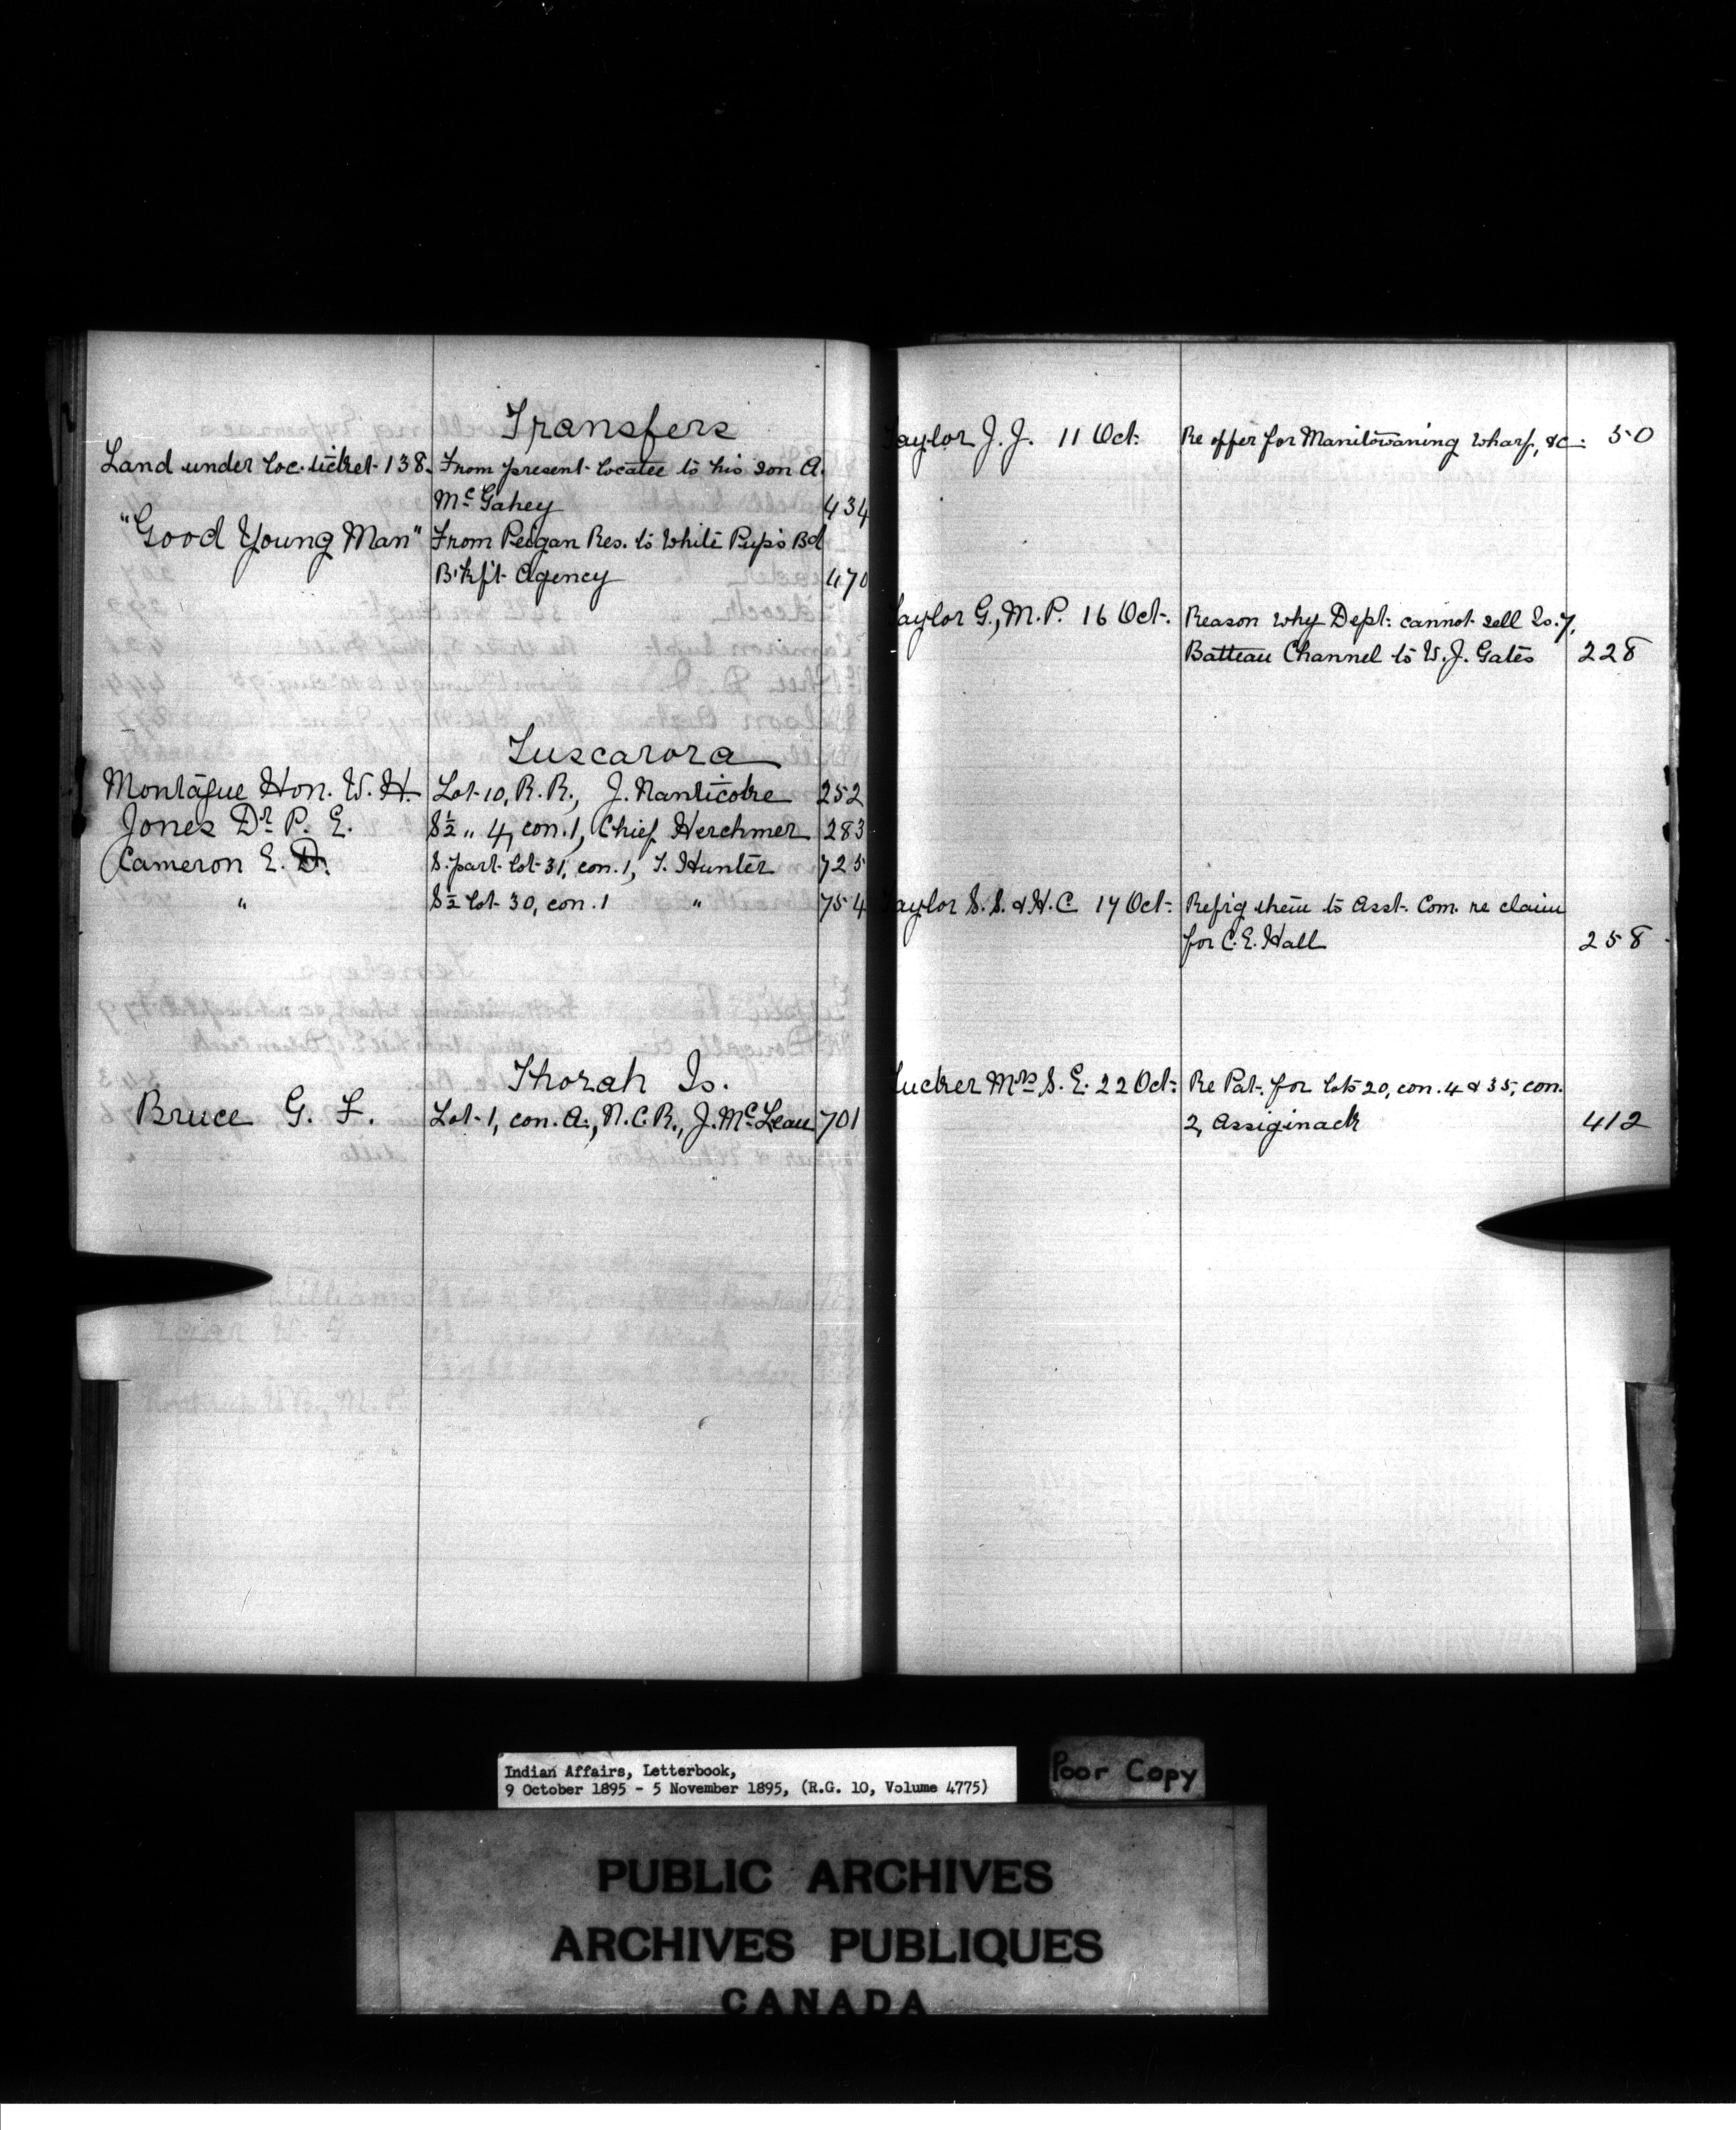 Transfers
Land under loc. ticket 138. From present locatee to his son A.
McGahey 434
"Good Young Man" From Peigan Res. to White Pup's Bd
B'kf't Agency 470
Tuscarora
Montague Hon. W. H. Lot 10, R. R., J. Nanticoke 252
Jones Dr P. E. S½ " 4, con. 1, Chief Herchmer 283
Cameron E. D. S. part lot 31, con. 1, T. Hunter 725
" S½ lot 30, con. 1 " 754
Thorah Is.
Bruce G. F. Lot 1, con. A., N. C. R., J. McLean 701
Taylor J. J. 11 Oct. Re offer for Manitowaning wharf, &c. 50
Taylor G., M. P. 16 Oct. Reason why Dept. cannot sell Is. 7,
Batteau Channel to W. J. Gates 228
Taylor S. S. & H. C. 17 Oct. Refr'g them to Asst. Com. re claim
for C. E. Hall 258
Tucker Mrs. S. E. 22 Oct. Re Pat. for lots 20, con. 4 & 35, con.
2, Assiginack 412
Indian Affairs, Letterbook,
9 October 1895 - 5 November 1895, (R.G. 10, Volume 4775)
Poor Copy
PUBLIC ARCHIVES
ARCHIVES PUBLIQUES
CANADA